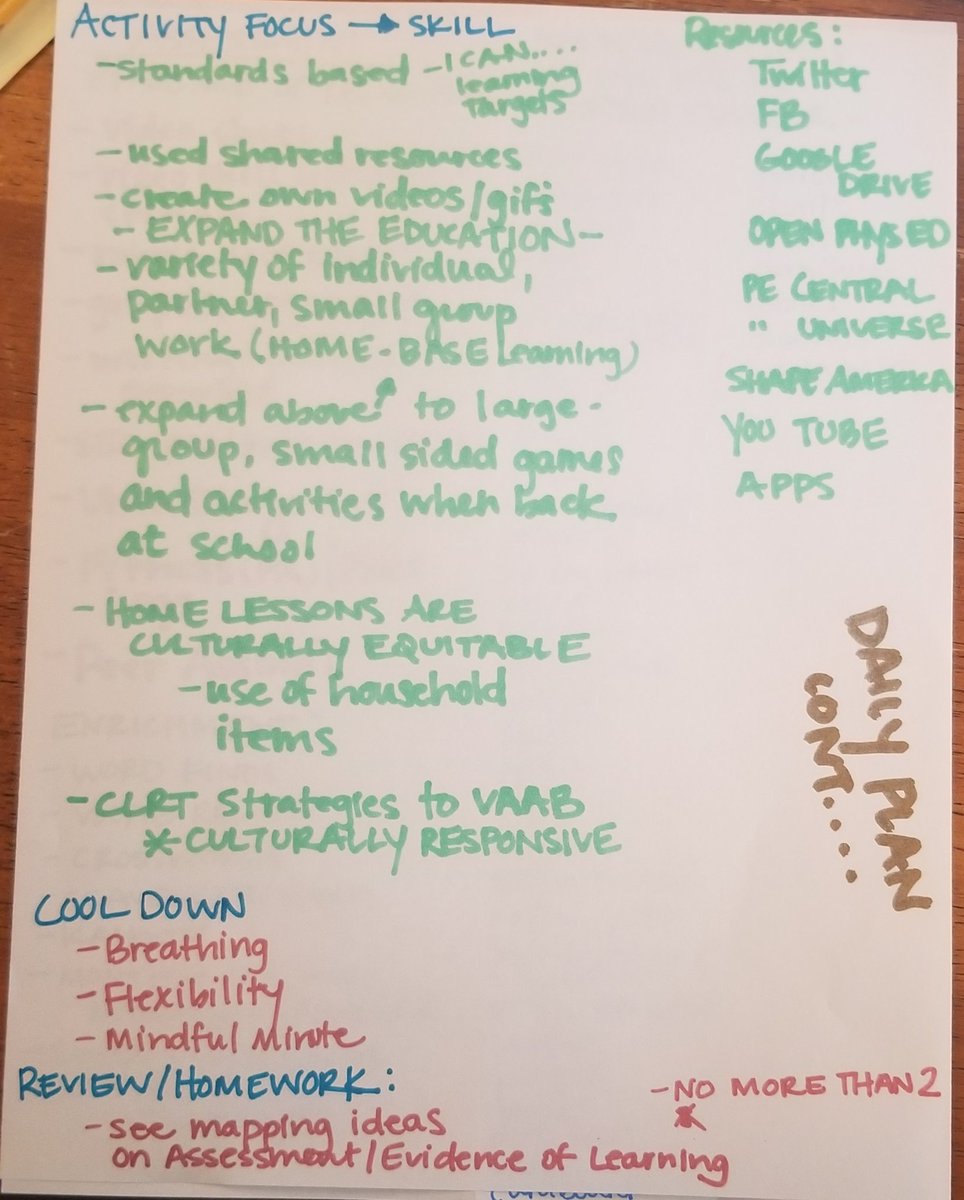 ACTIVITY FOCUS → SKILL
- standards based - I CAN....
learning
Targets
- used shared resources
- create own videos/gifs
- EXPAND THE EDUCATION -
- variety of individual,
partner, small group
work (HOME-BASE Learning)
- expand above to large-
group, small sided games
and activities when back
at school
- HOME LESSONS ARE
CULTURALLY EQUITABLE
- use of household
items
- CLRT Strategies to VAAB
* CULTURALLY RESPONSIVE
Resources:
Twitter
FB
GOOGLE
DRIVE
OPEN PHYS ED
PE CENTRAL
" UNIVERSE
SHAPE AMERICA
YOU TUBE
APPS
DAILY PLAN
CONT....
COOL DOWN
- Breathing
- Flexibility
- Mindful Minute
REVIEW/HOMEWORK:
- see mapping ideas
on Assessment/Evidence of Learning
- NO MORE THAN 2
*